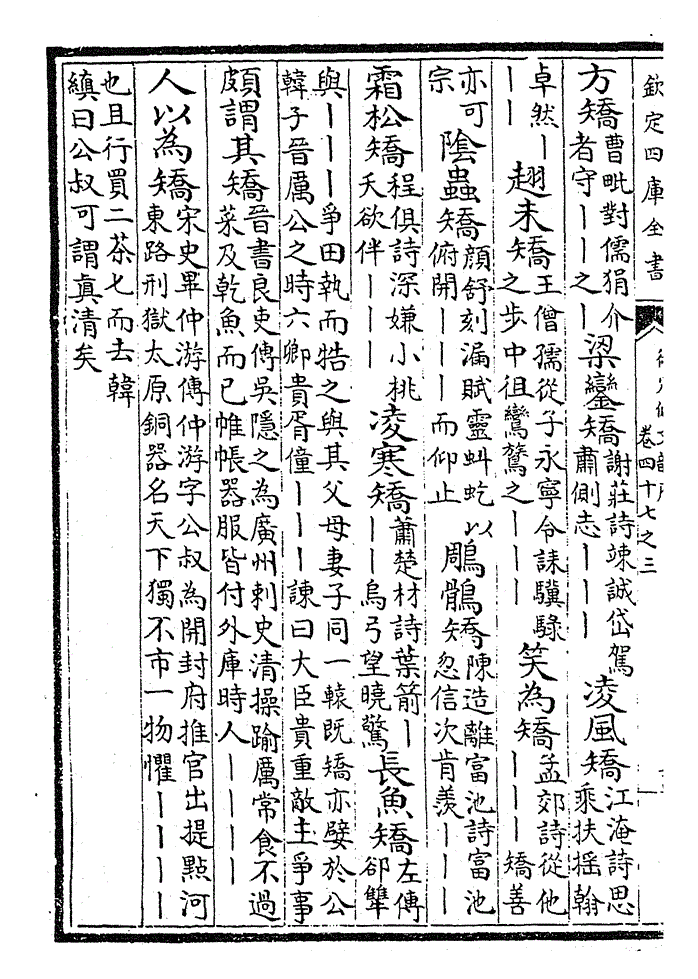 欽定四庫全書
卷四十七之三
方矯曹毗對儒狷介者守丨丨之丨梁鑾矯謝莊詩竦誠岱駕肅側志丨丨丨凌風矯江淹詩思乘扶搖翰
卓然丨丨丨趐未矯王僧孺從子永寧令誄驥騄之步中徂鸞鷟之丨丨丨笑為矯孟郊詩從他丨丨丨矯善
亦可宗陰蟲矯顏舒刻漏賦靈虯虼以俯開丨丨丨而仰止鵰鶻矯陳造離富池詩富池忽信次肯羨丨丨丨
霜松矯程俱詩深嫌小桃夭欲伴丨丨丨凌寒矯蕭楚材詩葉箭丨丨丨烏弓望曉驚長魚矯左傳郤犨
與丨丨丨爭田執而牿之與其父母妻子同一轅既矯亦嬖於公
韓子晉厲公之時六卿貴胥僮丨丨丨諫曰大臣貴重敵主爭事
頗謂其矯晉書良吏傳吳隱之為廣州刺史清操踰厲常食不過菜及乾魚而已帷帳器服皆付外庫時人丨丨丨丨
人以為矯宋史畢仲游傳仲游字公叔為開封府推官出提點河東路刑獄太原銅器名天下獨不市一物懼丨丨丨丨
也且行買二茶匕而去韓
縝曰公叔可謂真清矣